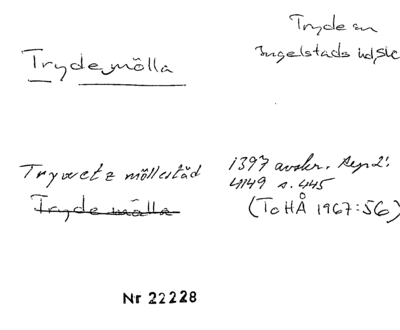 Tryde sn
Ingelstads hd, Skå
Tryde mölla
Trywetz möllestäd
1397 avskr. Rep 2:
4149 s. 445
Tryde mölla
(ToHÅ 1967:56)
Nr 22228